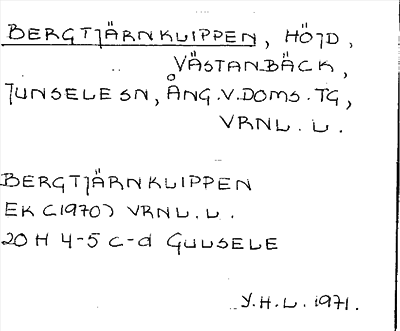 BERGTJÄRNKLIPPEN, HÖJD,
VÄSTANBÄCK,
JUNSELE SN, ÅNG.V.DOMS.TG,
VRNL.L.
BERGTJÄRNKLIPPEN
EK (1970) VRNL.L.
20 H 4-5 c-d GULSELE
Y.H.L. 1971.